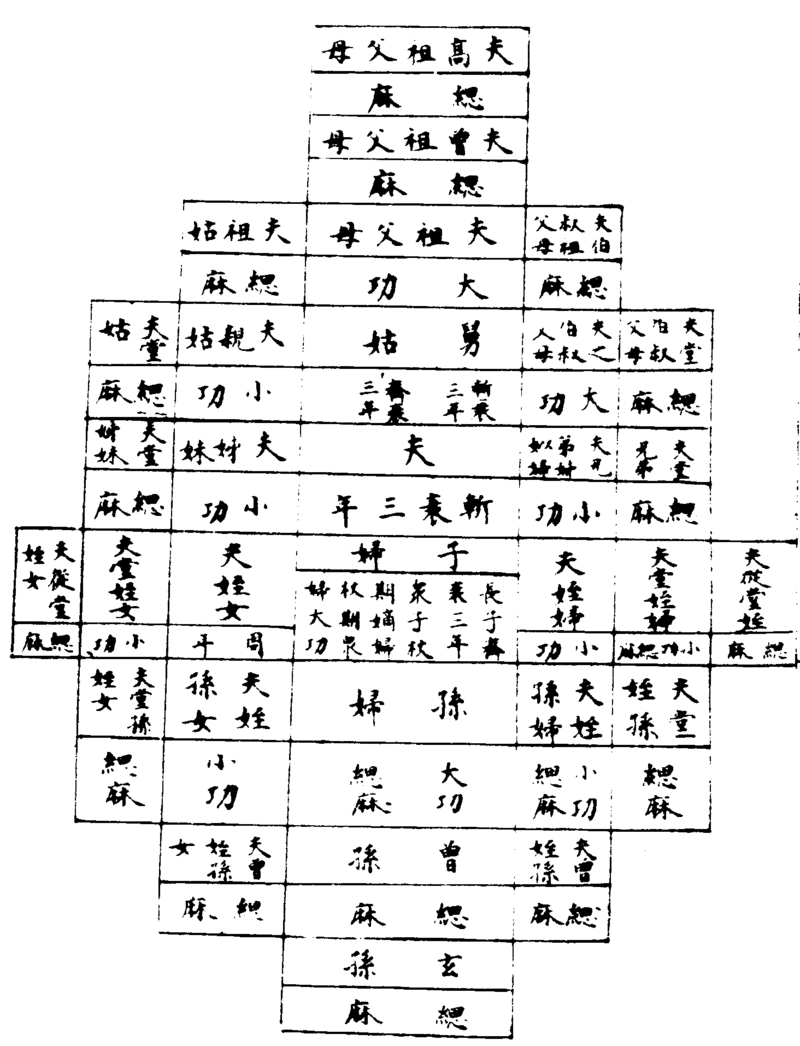 夫高祖父母
緦麻
夫曾祖父母
緦麻
夫伯叔祖父母
夫祖父母
夫祖姑
緦麻
大功
緦麻
夫堂伯叔父母
夫之伯叔父母
舅姑
夫親姑
夫堂姑
緦麻
大功
斬衰三年
齊衰三年
小功
緦麻
夫堂兄弟
夫兄弟姊婦
夫
夫姊妹
夫堂姊妹
緦麻
小功
斬衰三年
小功
緦麻
夫從堂姪
夫堂姪婦
夫姪婦
子婦
長子齊衰三年
衆子杖期
嫡婦杖期
衆婦大功
夫姪女
夫堂姪女
夫從堂姪女
緦麻
小功緦麻
小功
周年
小功
緦麻
夫堂姪孫
夫姪孫婦
孫婦
夫姪孫女
夫堂孫姪女
緦麻
小功緦麻
大功緦麻
小功
緦麻
夫曾姪孫
曾孫
夫曾姪孫女
緦麻
緦麻
緦麻
玄孫
緦麻